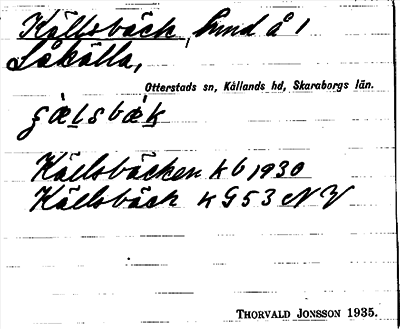 Källsbäck, hmd å 1
Låkälla,
Otterstads sn, Kållands hd, Skaraborgs län.
Källsbäcken kb 1930
Källsbäck k G53 NV
THORVALD JONSSON 1935.